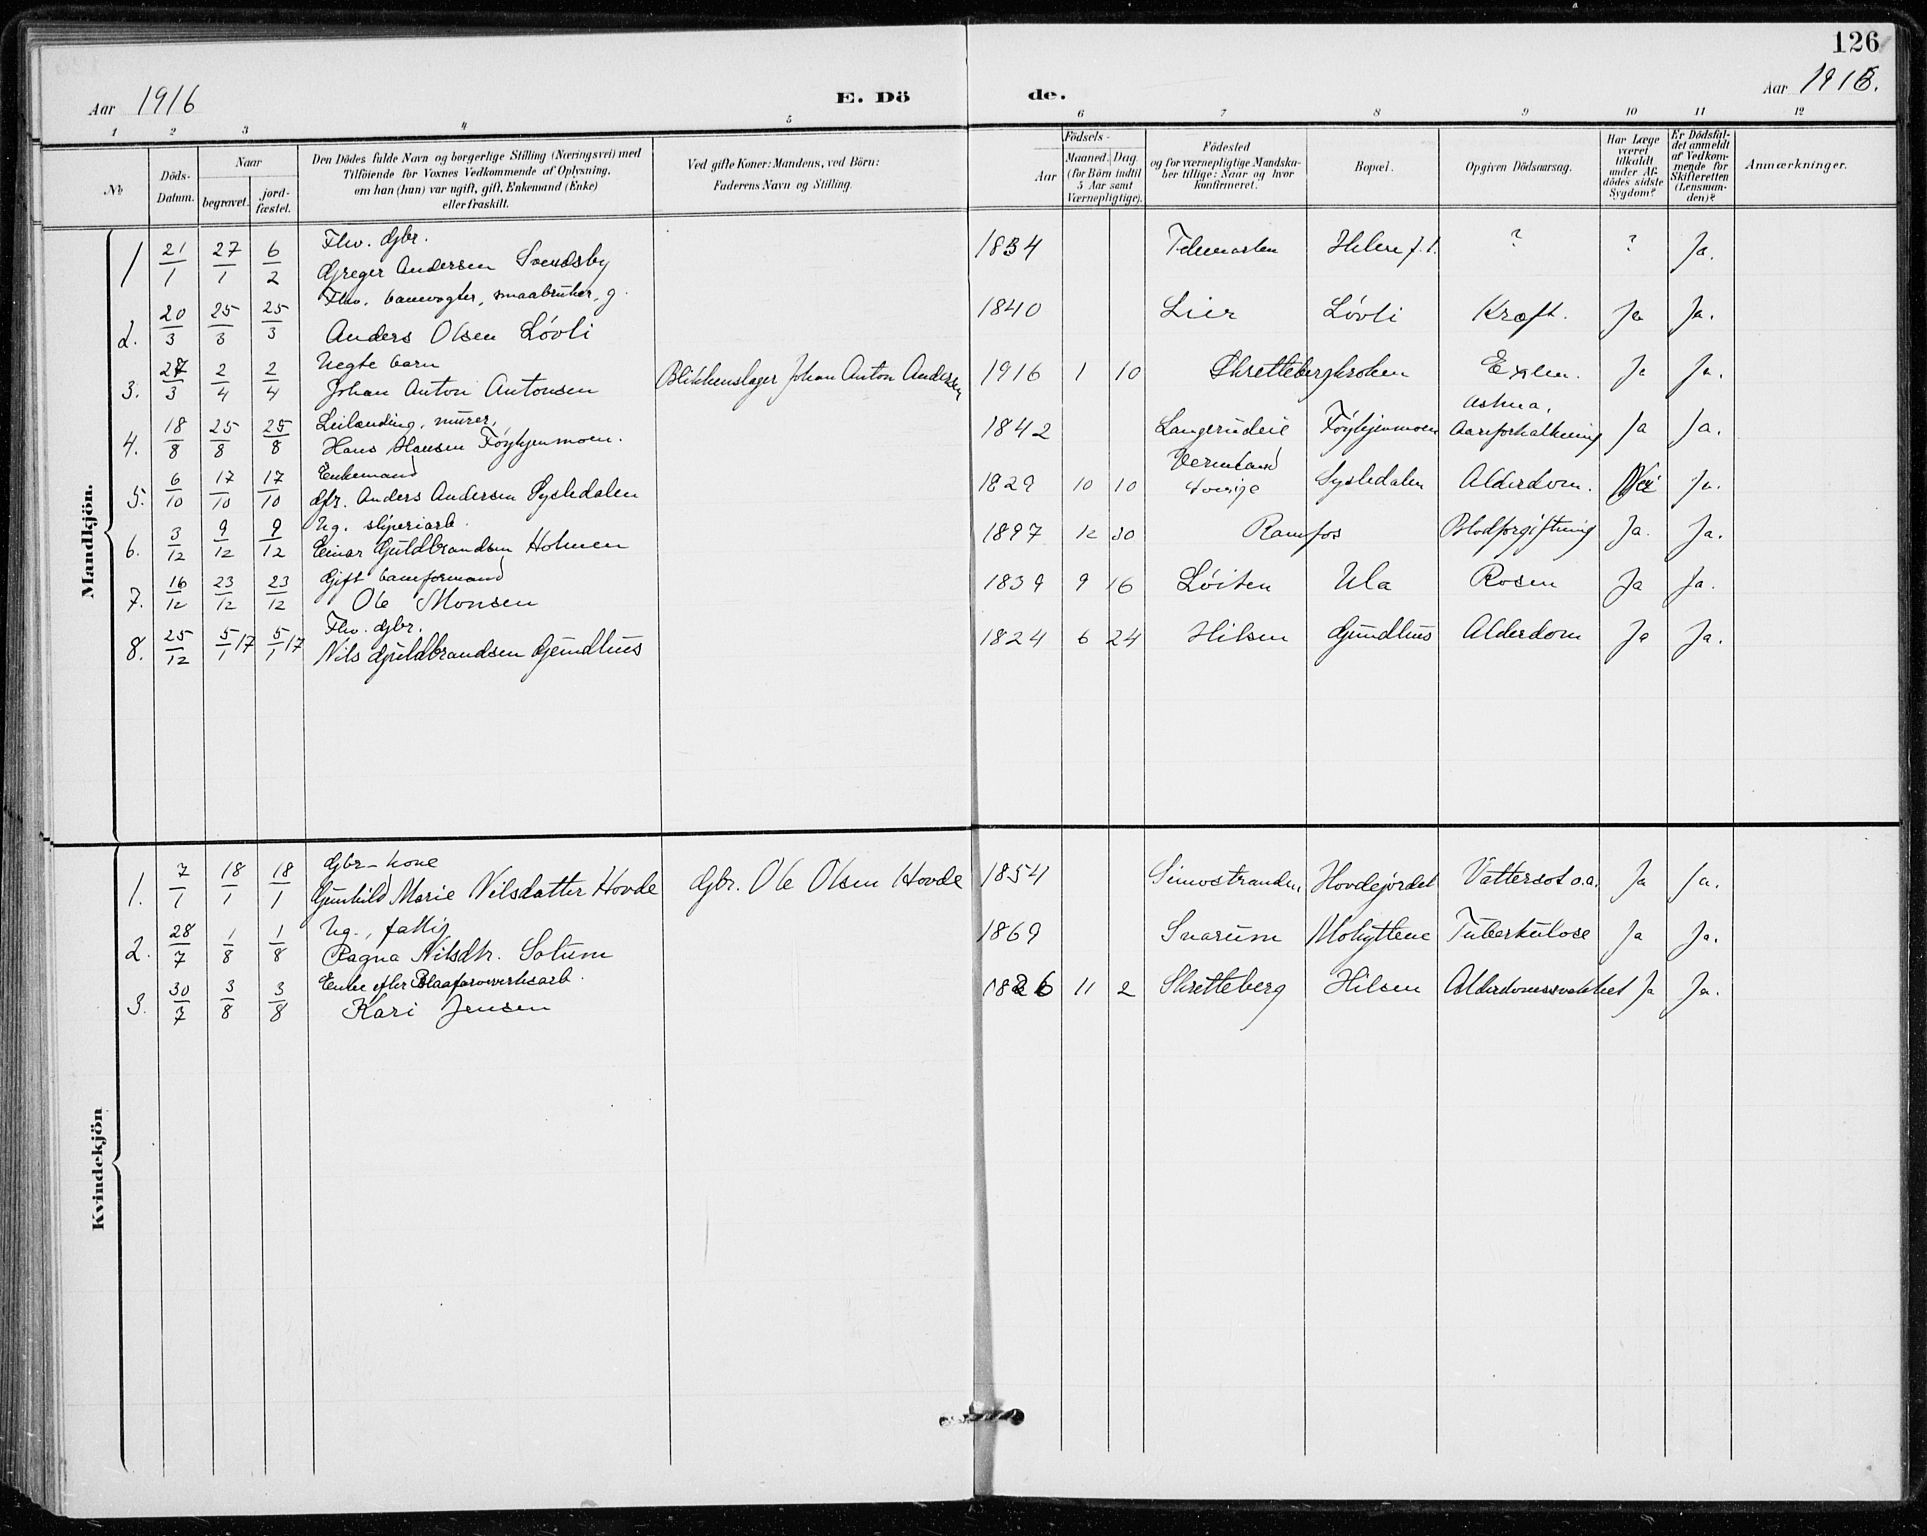 126
Aar 1916
E. Dö
de.
Aar 1916.
1 2 3 4 5 6 7 8 9 10 11 12
№
Döds-Datum.
Naar
begravet.
jord-fæstet.
Den Dödes fulde Navn og borgerlige Stilling (Næringsvei) med
Tilföiende for Voxnes Vedkommende af Oplysning,
om han (hun) var ugift, gift, Enkemand (Enke)
eller fraskilt.
Ved gifte Koner: Mandens, ved Börn:
Faderens Navn og Stilling.
Födsels-
Aar
Maaned. Dag
(for Börn indtil
5 Aar samt
Værnepligtige).
Födested
og for værnepligtige Mandska-
ber tillige: Naar og hvor
konfirmeret.
Bopæl.
Opgiven Dödsaarsag.
Har Læge
været
tilkaldt
under Af-
dödes sidste
Sygdom?
Er Dödsfal-
det anmeldt
af Vedkom-
mende for
Skifteretten
(Lensman-
den)?
Anmærkninger.
Mandkjön.
Fhv. gbr.
1 21/1 27/1 6/2 Greger Andersen Svendsby 1834 Telemarken Hilsen f.t. ? ? Ja.
Fhv. banevogter, smaabruker, g.
2. 20/3 25/3 25/3 Anders Olsen Lövli 1840 Lier Lövli Kræft. Ja Ja.
Uegte barn
3. 27/3 2/4 2/4 Johan Anton Antonsen Blikkenslager Johan Anton Andersen 1916 1 10 Skrettebergkroken Exlem. Ja Ja.
Leilending, murer, Astma,
4. 18/8 25/8 25/8 Hans Hansen Föyhjenmoen. 1842 Langerudeie Föyhjenmoen Aareforkalkning Ja Ja.
Enkemand Vermland
5. 6/10 17/10 17/10 gfr. Anders Andersen Sysledalen 1829 10 10 Sverige Sysledalen Alderdom. Nei Ja.
Ug. sliperiarb.
6. 3/12 9/12 9/12 Einar Guldbrandsen Holmen 1897 12 30 Ramfos Blodforgiftning Ja. Ja.
Gift baneformand
7. 16/12 23/12 23/12 Ole Monsen 1839 9 16 Löiten Ula Rosen Ja Ja.
Fhv. gbr.
8. 25/12 5/1 17 5/1 17 Nils Guldbrandsen Gundhus 1824 6 24 Hilsen Gundhus Alderdom Ja Ja.
Kvindekjön
Gbr-kone
1. 7/1 18/1 18/1 Gunhild Marie Nilsdatter Hovde gbr. Ole Olsen Hovde 1854 Simostranden Hovdejordet Vattersot o.a. Ja Ja.
Ug., fattig
2. 28/7 1/8 1/8 Ragna Nilsdtr. Solum 1869 Snarum Mohyttene Tuberkulose Ja Ja.
Enke efter Blaafarveverksarb.
3. 30/7 3/8 3/8 Kari Jensen 1826 11 2 Skretteberg Hilsen Alderdomssvakhet Ja Ja.